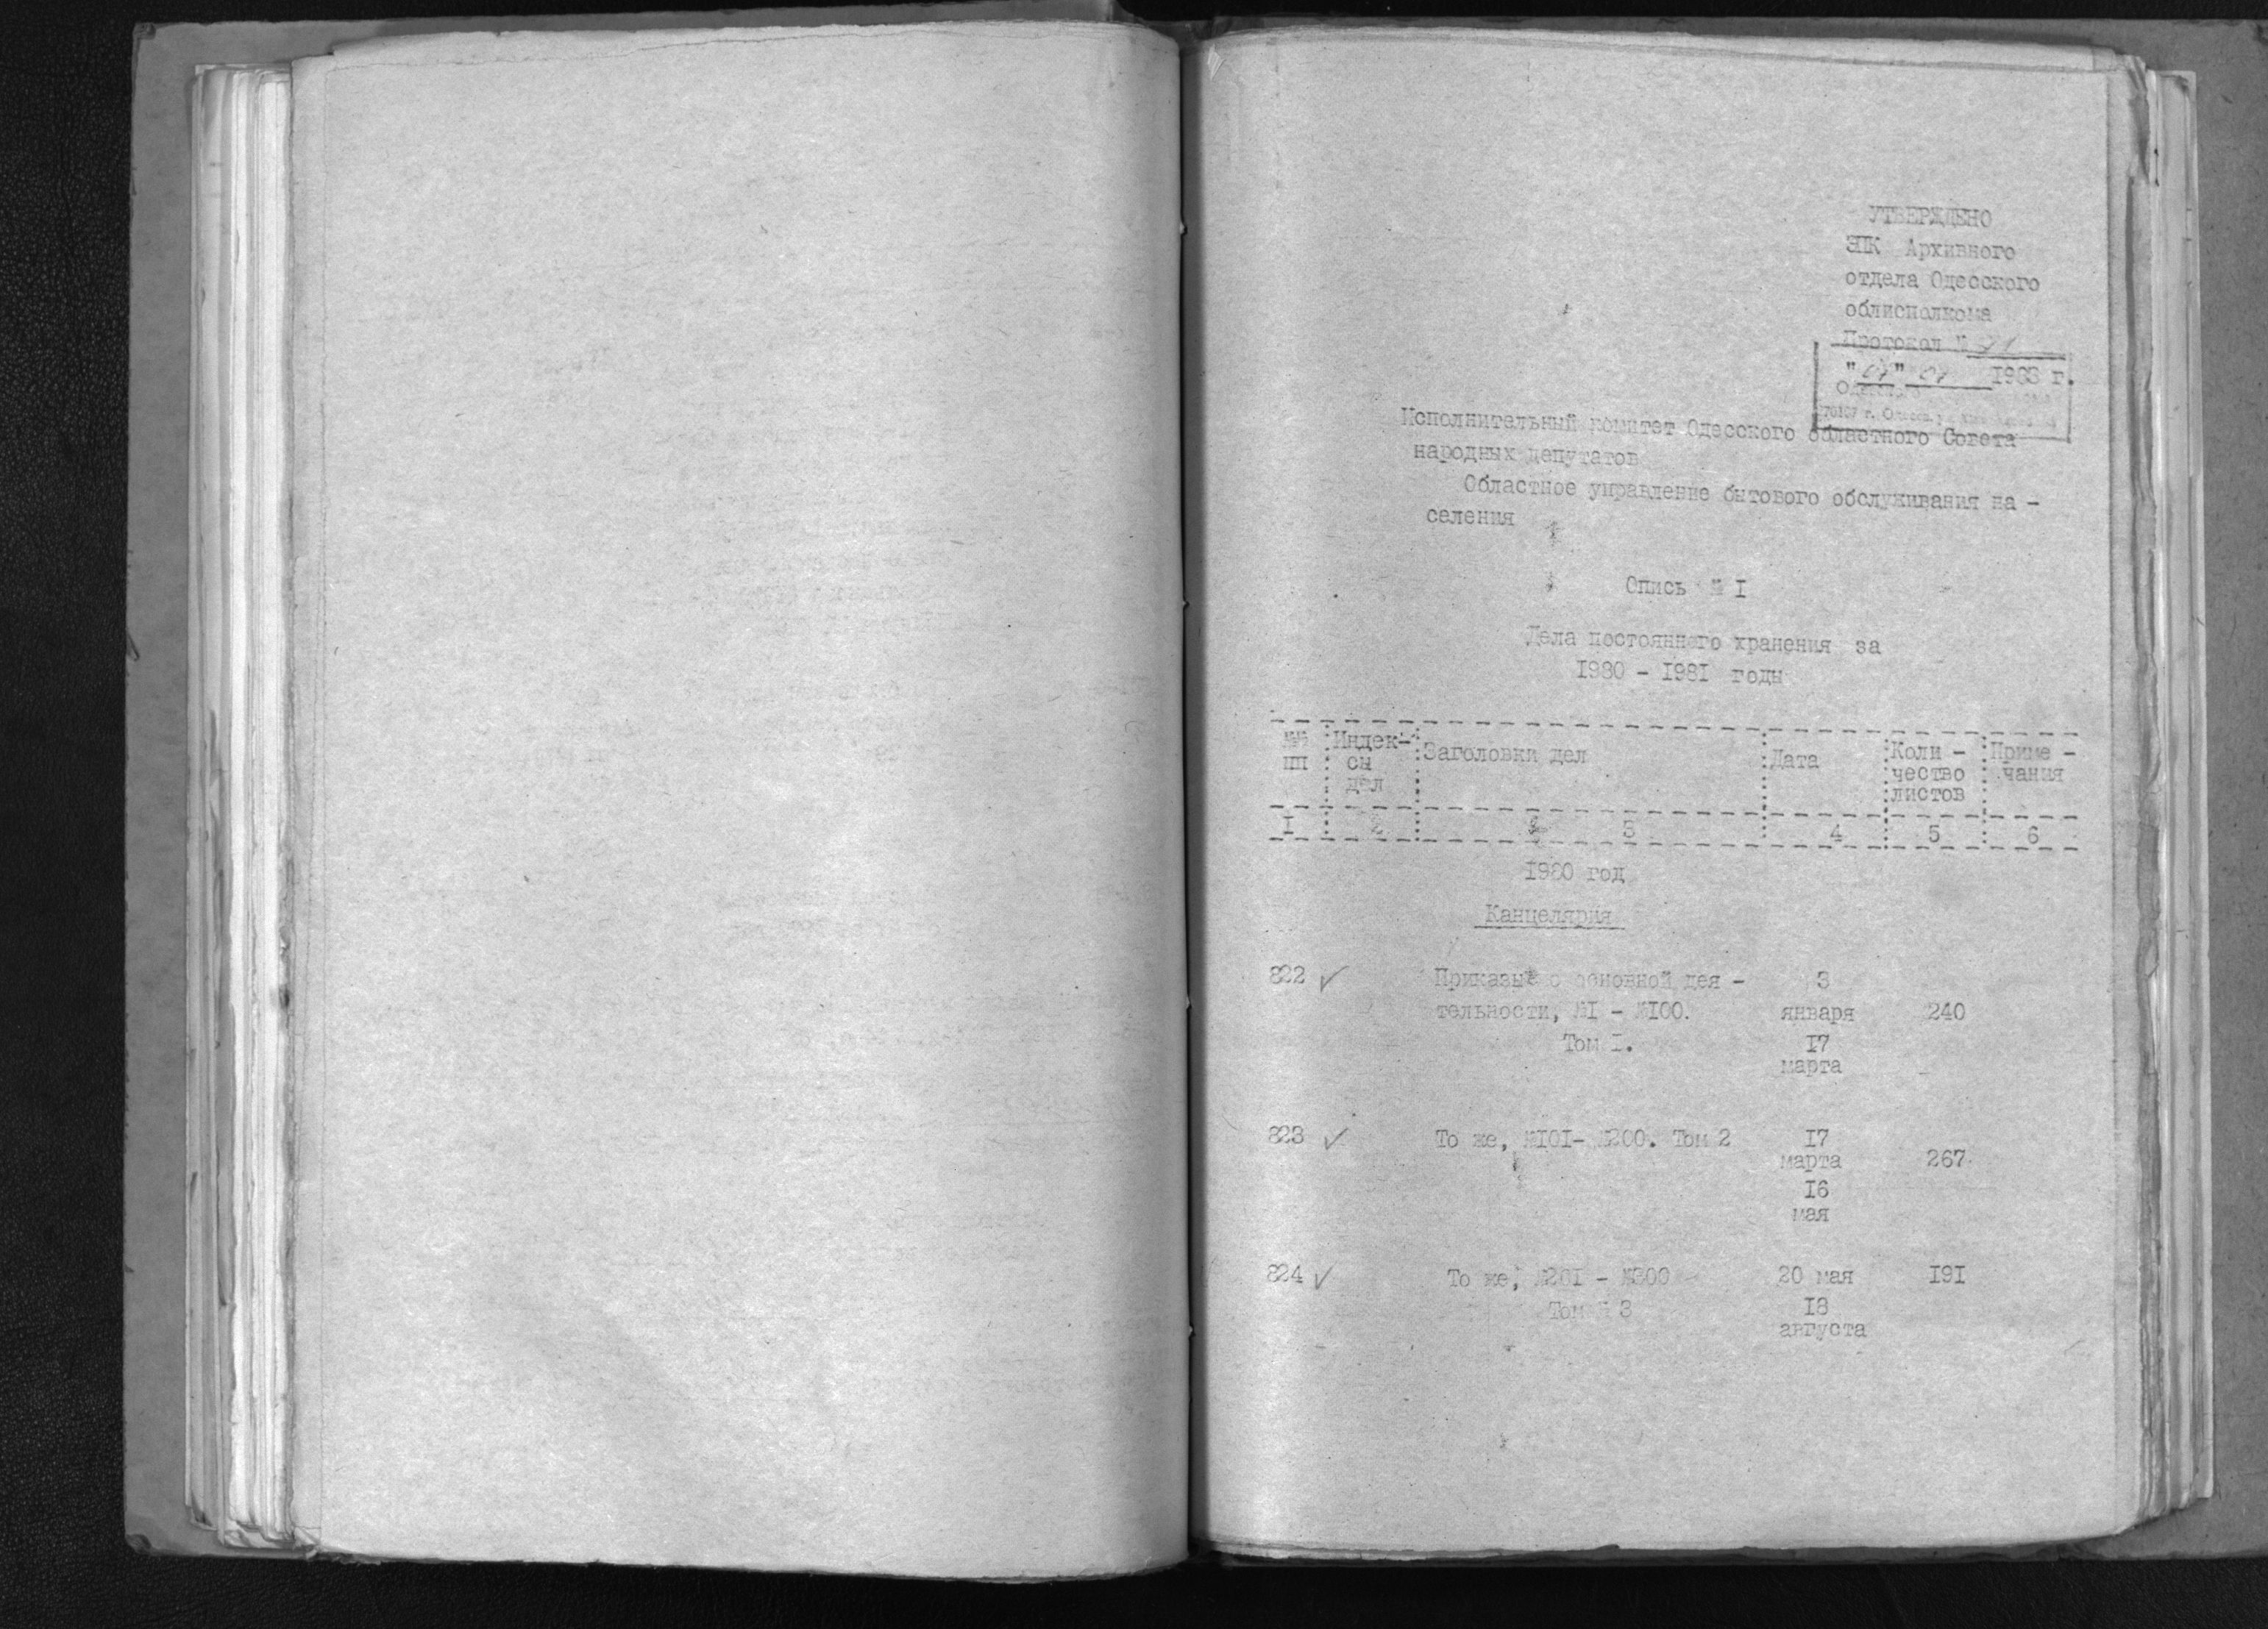 УТВЕРЖДЕНО
ЭПК Архивного
отдела Одесского
облисполкома
Протокол №
" " 1983 г.
Исполнительный комитет Одесского областного Совета
народных депутатов
Областное управление бытового обслуживания на -
селения
Опись № I
Дела постоянного хранения за
1980 - 1981 годы
№№ Индек- Заголовки дел Дата Коли - Приме -
пп сы чество чания
дел листов
I 2 3 4 5 6
1980 год
Канцелярия
822 ✓ Приказы по основной дея - 3
тельности, №I - №I00. января 240
Том I. I7
марта
823 ✓ То же, №I0I- №200. Том 2 I7
марта 267
I6
мая
824 ✓ То же, №20I - №300 20 мая I9I
Том 3 I8
августа